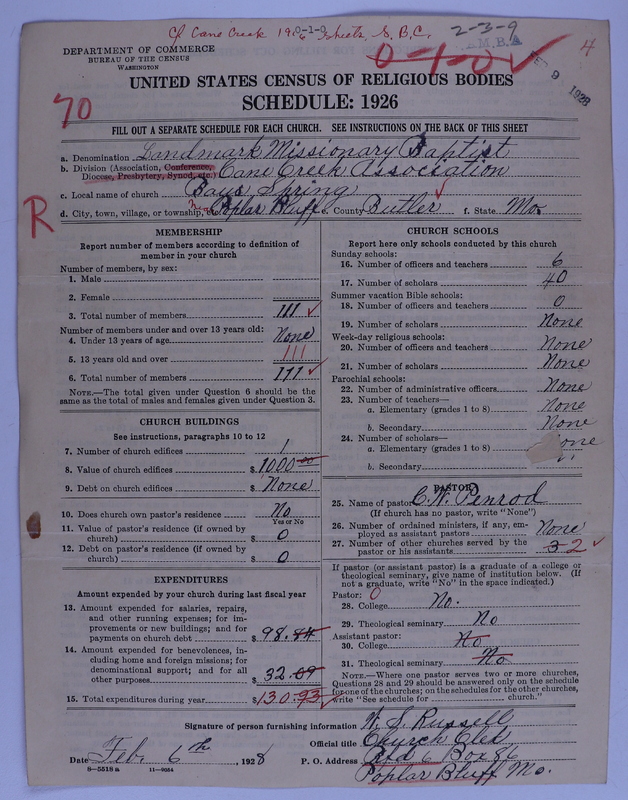 Cf Cane Creek 1926 sheets, S. B. C.
0-1-0
2-3-9
0-1-0 ✓
4
DEPARTMENT OF COMMERCE
BUREAU OF THE CENSUS
WASHINGTON
M.B.A
FEB 9 1928
UNITED STATES CENSUS OF RELIGIOUS BODIES
70
SCHEDULE: 1926
FILL OUT A SEPARATE SCHEDULE FOR EACH CHURCH. SEE INSTRUCTIONS ON THE BACK OF THIS SHEET
a. Denomination Landmark Missionary Baptist
b. Division (Association, Conference, Diocese, Presbytery, Synod, etc.) Cane Creek Association
c. Local name of church Bays Spring
R
d. City, town, village, or township, etc. Near Poplar Bluff e. County Butler ✓ f. State Mo.
MEMBERSHIP
Report number of members according to definition of
member in your church
Number of members, by sex:
1. Male
2. Female
3. Total number of members 111 ✓
Number of members under and over 13 years old:
4. Under 13 years of age None
5. 13 years old and over 111
6. Total number of members 111 ✓
NOTE.—The total given under Question 6 should be
same as the total of males and females given under Question 3.
CHURCH BUILDINGS
See instructions, paragraphs 10 to 12
7. Number of church edifices 1
8. Value of church edifices $ 1000 00
9. Debt on church edifices $ None
10. Does church own pastor's residence No
Yes or No
11. Value of pastor's residence (if owned by
church) $ 0
12. Debt on pastor's residence (if owned by
church) $ 0
EXPENDITURES
Amount expended by your church during last fiscal year
13. Amount expended for salaries, repairs,
and other running expenses; for im-
provements or new buildings; and for
payments on church debt $ 98.84
14. Amount expended for benevolences, in-
cluding home and foreign missions; for
denominational support; and for all
other purposes $ 32.09
15. Total expenditures during year $ 130.93 ✓
CHURCH SCHOOLS
Report here only schools conducted by this church
Sunday schools:
16. Number of officers and teachers 6
17. Number of scholars 40
Summer vacation Bible schools:
18. Number of officers and teachers 0
19. Number of scholars None
Week-day religious schools:
20. Number of officers and teachers None
21. Number of scholars None
Parochial schools:
22. Number of administrative officers None
23. Number of teachers—
a. Elementary (grades 1 to 8) None
b. Secondary None
24. Number of scholars—
a. Elementary (grades 1 to 8) one
b. Secondary
PASTOR
25. Name of pastor C. W. Penrod
(If church has no pastor, write "None")
26. Number of ordained ministers, if any, em-
ployed as assistant pastors None
27. Number of other churches served by the
pastor or his assistants 3 2 ✓
If pastor (or assistant pastor) is a graduate of a college or
theological seminary, give name of institution below. (If
not a graduate, write "No" in the space indicated.)
Pastor: 0
28. College No.
29. Theological seminary No
Assistant pastor:
30. College No
31. Theological seminary No
NOTE.—Where one pastor serves two or more churches,
Questions 28 and 29 should be answered only on the schedule
for one of the churches; on the schedules for the other churches,
write "See schedule for church."
Signature of person furnishing information W. S. Russell
Official title Church Clek
Date Feb. 6th, 1928 P. O. Address Rod 6 Box 86
8—5518 a 11—9054
Poplar Bluff Mo.